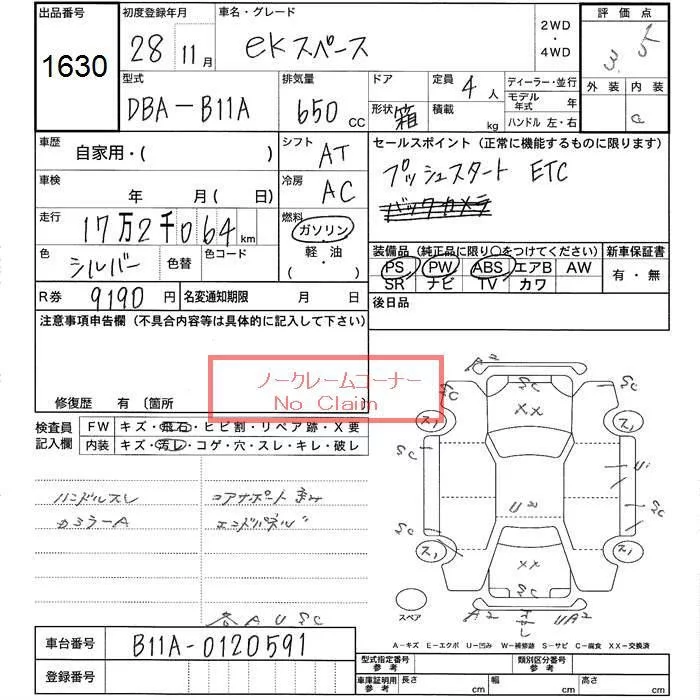 出品番号 初度登録年月 車名・グレード 2WD・4WD 評価点
1630 28 11月 ekスペース 3.5
型式 排気量 ドア 定員 ディーラー・並行 外装 内装
DBA-B11A 650 CC 形状 箱 4人 積載 kg モデル年式 年 ハンドル 左・右 C
車歴 自家用・( ) シフト AT セールスポイント(正常に機能するものに限ります)
車検 年 月(日) 冷房 AC プッシュスタート ETC
バックカメラ
走行 17万2千064km 燃料 ガソリン・軽油・( )
色 シルバー 色替 色コード
装備品(純正品に限り〇をつけてください) 新車保証書
PS PW ABS エアB AW 有・無
SR ナビ TV カワ
R券 9190円 名変通知期限 月 日 後日品
注意事項申告欄(不具合内容等は具体的に記入して下さい)
ノークレームコーナー
No Claim
修復歴 有〔箇所
検査員記入欄 FW キズ・飛石・ヒビ割・リペア跡・X要
内装 キズ・汚レ・コゲ・穴・スレ・キレ・破レ
ハンドルスレ コアサポート歪み
カラーA エンドパネル〃
A U SC
A2 SC SC SC
XX
ス1 ス1
SC Ui
U2 SC
SC
ス1 ス1
XX
SC
スペア A2 UA2
A-キズ E-エクボ U-凹み W-補修跡 S-サビ C-腐食 XX-交換済
車台番号 B11A-0120591
登録番号
型式指定番号 参考 類別区分番号 参考
車庫証明用 参考 長さ cm 幅 cm 高さ cm